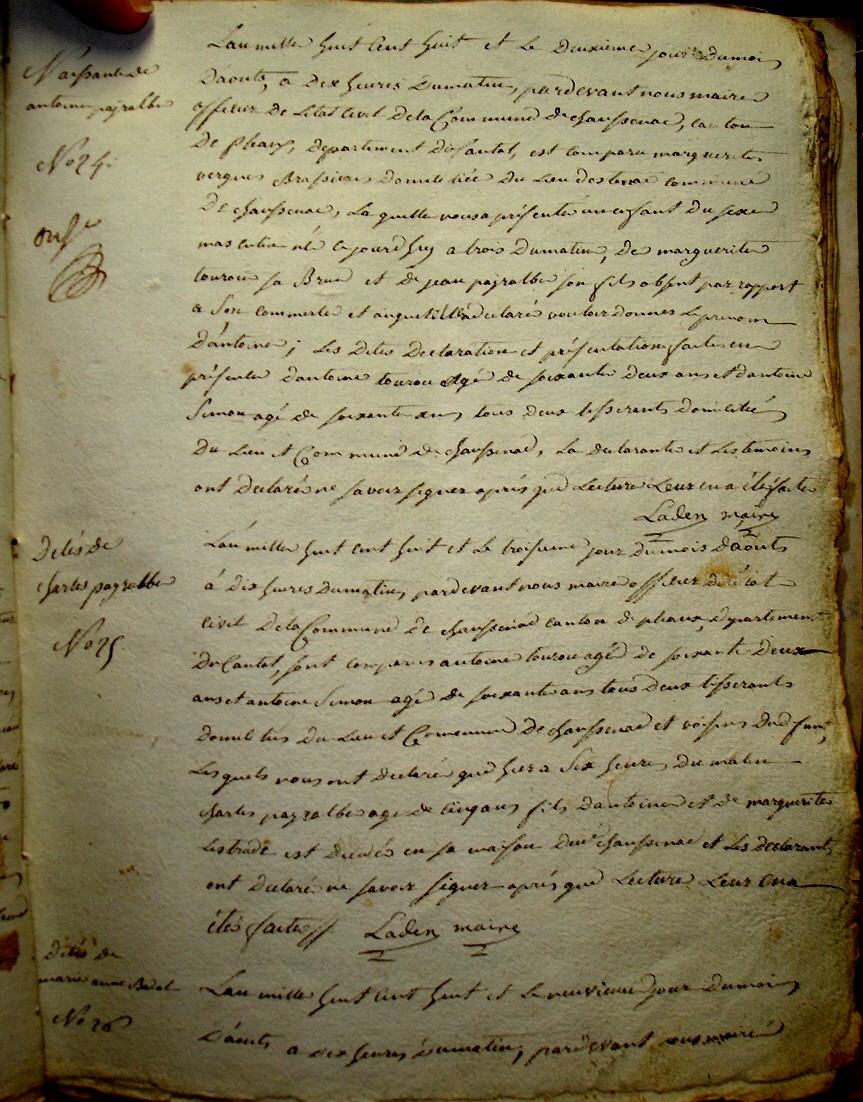 Naissance de
antoine payralbe
No 24.
L'an mille huit cent huit et le deuxieme jour du mois
D'aouts, a dix heures du matin, pardevant nous maire
officier de l'etat civil de la Commune de chaussenac, canton
De pleaux, departement du Cantal, est comparu marguerite
vergnes Brassiere domiciliée du Lieu commune
De chaussenac, La quelle nous a présenté un enfant du sexe
masculin né ce jourdhuy a trois du matin, de marguerite
tourou sa Brue et de jean payralbe son fils absent par rapport
a son commerce et auquel elle a declaré vouloir donner Le prenom
D'antoine; Les dites Declaration et présentation faites en
présence d'antoine tourou agé de soixante deux ans et d'antoine
Simon agé de soixante ans tous deux tisserants domiciliés
Du Lieu et Commune de chaussenac, La declarante et Les temoins
ont declaré ne savoir signer aprés que Lecture Leur en a été faite
Laden maire
Décés de
charles payralbe
No 25
L'an mille huit cent huit et Le troisieme jour du mois d'aouts
à dix heures du matin, pardevant nous maire officier de l'état
civil de la Commune de chaussenac canton de pleaux, departement
Du Cantal, sont comparus antoine tourou agé de soixante Deux
ans et antoine Simon agé de soixante ans tous deux tisserants
domiciliés du Lieu et Commune De chaussenac et voisins du defunt,
Lesquels nous ont declaré que hier a Six heures du matin
charles payralbe agé de cinq ans fils d'antoine et de marguerite
Lestrade est decédé en sa maison chaussenac et Les Declarants
ont declaré ne savoir signer aprés que Lecture Leur en a
étés faite Laden maire
Décés de
marie anne
No 26
L'an mille huit cent huit et Le neuvieme jour du mois
D'aouts a dix heures du matin, pardevant nous maire